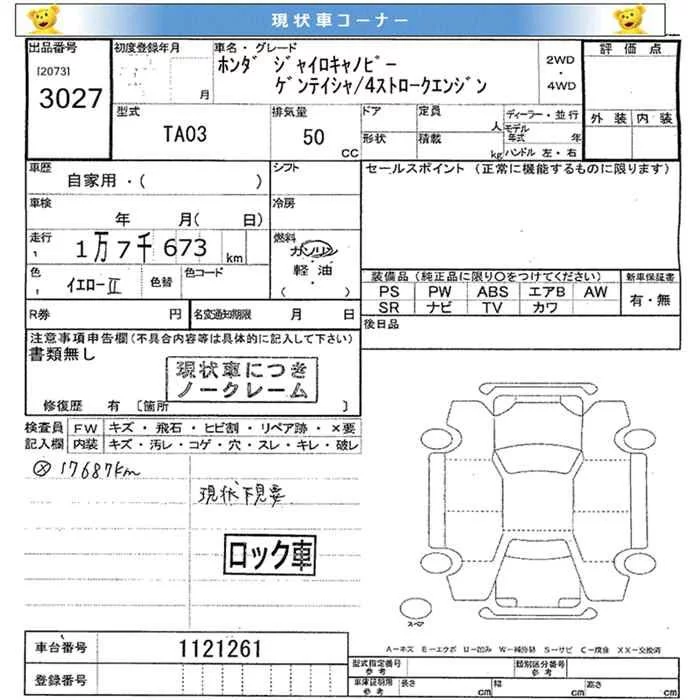 現状車コーナー
出品番号 初度登録年月 車名・グレード 評価点
[2073]
3027
月
ホンダ ジャイロキャノピー
ゲンテイシャ/4ストロークエンジン
2WD
・
4WD
外装 内装
型式 排気量 ドア 定員 ディーラー・並行
TA03 50 CC
人 モデル年式 年
形状 積載 kg ハンドル 左・右
車歴 シフト セールスポイント (正常に機能するものに限ります)
自家用・( )
車検 冷房
年 月( 日)
走行 燃料
1 1万7千673 km
ガソリン
軽油
( )
色 イエローⅡ 色替 色コード
1
装備品 (純正品に限り〇をつけてください) 新車保証書
PS PW ABS エアB AW 有・無
SR ナビ TV カワ
R券 円 名変通知期限 月 日
後日品
注意事項申告欄(不具合内容等は具体的に記入して下さい)
書類無し
現状車につき
ノークレーム
修復歴 有 [箇所 ]
検査員 FW キズ・飛石・ヒビ割・リペア跡・×要
記入欄 内装 キズ・汚レ・コゲ・穴・スレ・キレ・破レ
17687km
現状下見要
ロック車
スペア
A－キズ E－エクボ U－凹み W－補修跡 S－サビ C－腐食 XX－交換済
車台番号 1121261
登録番号
型式指定番号 参考 類別区分番号 参考
車庫証明用 参考 長さ cm 幅 cm 高さ cm